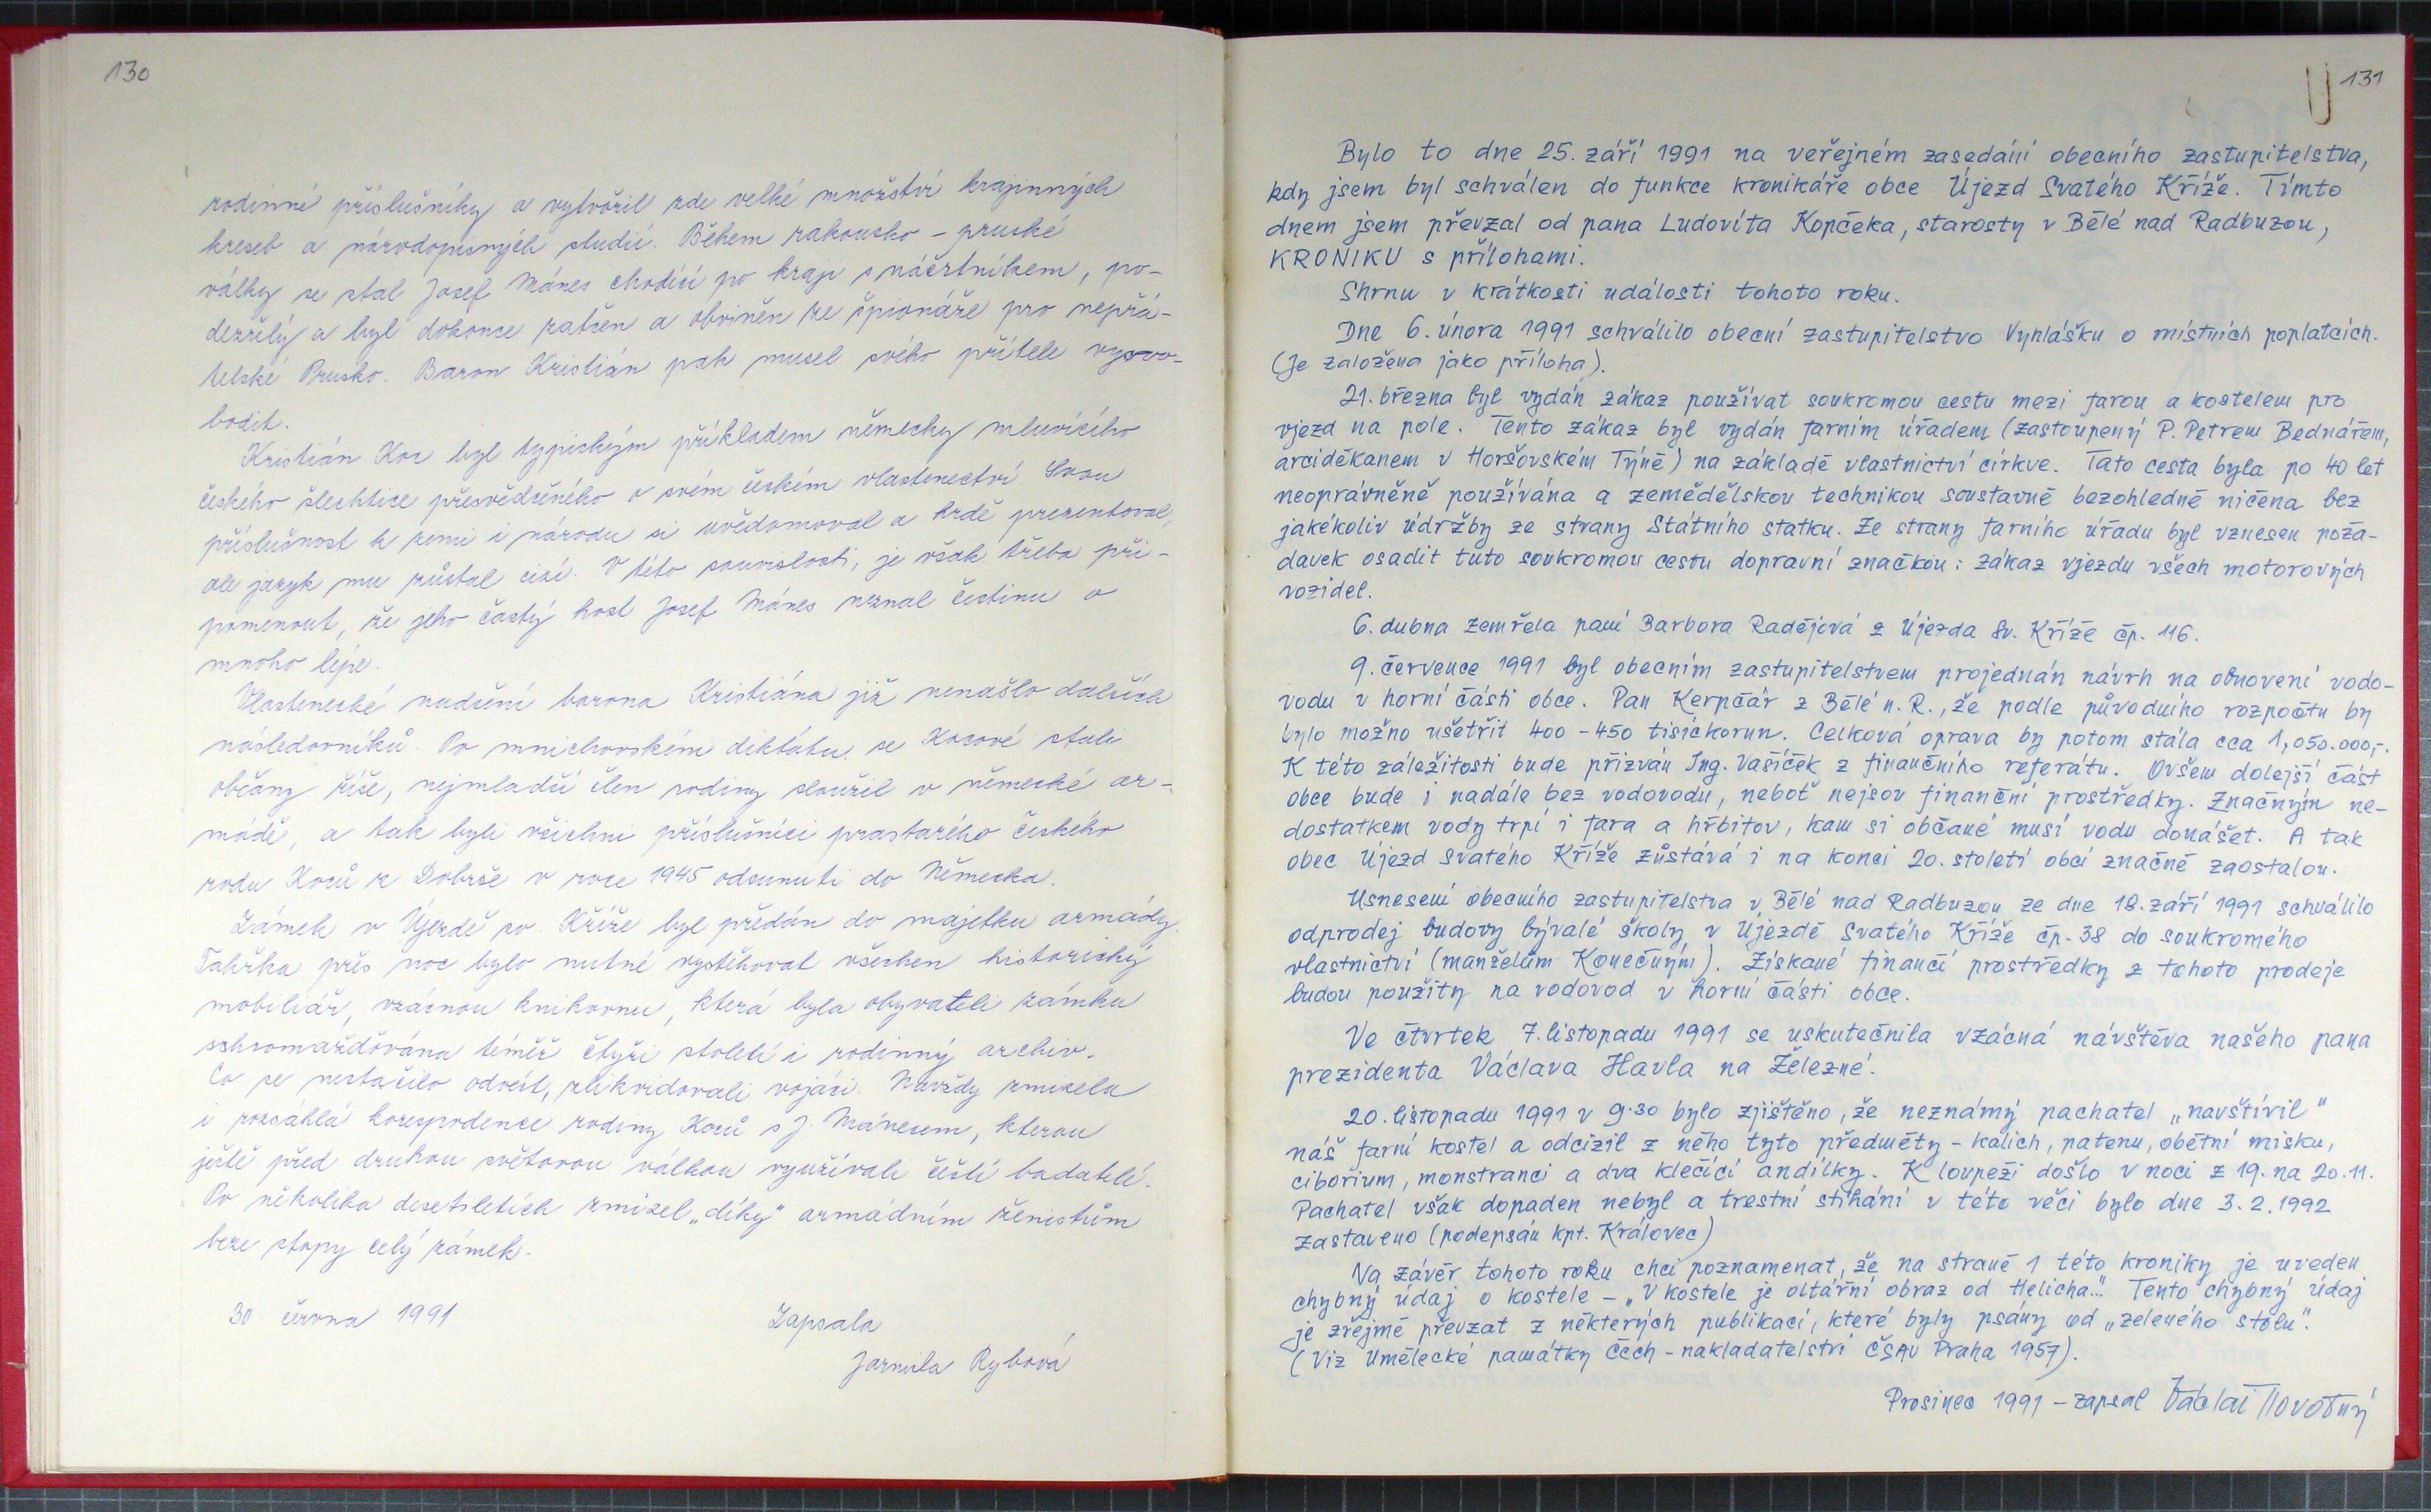 130
rodinné příslušníky a vytvořil zde velké množství krajinných
kreseb a národopisných studií. Během rakousko - pruské
války se stal Josef Mánes chodící po kraji s náčrtníkem, po-
dezřelý a byl dokonce zatčen a obviněn ze špionáže pro nepřá-
telské Prusko. Baron Kristián pak musel svého přítele vysvo-
bodit.
Kristián Koc byl typickým příkladem německy mluvícího
českého šlechtice přesvědčeného o svém českém vlastenectví. Svou
příslušnost k zemi i národu si uvědomoval a hrdě prezentoval,
ale jazyk mu zůstal cizí. V této souvislosti, je však třeba při-
pomenout, že jeho častý host Josef Mánes neznal češtinu o
mnoho lépe.
Vlastenecké nadšení barona Kristiána již nenašlo dalších
následovníků. Po mnichovském diktátu se Kocové stali
občany říše, nejmladší člen rodiny sloužil v německé ar-
mádě, a tak byli všichni příslušníci prastarého českého
rodu Koců z Dobrše v roce 1945 odsunuti do Německa.
Zámek v Újezdě sv. Kříže byl předán do majetku armády.
Takřka přes noc bylo nutné vystěhovat všechen historický
mobiliář, vzácnou knihovnu, která byla obyvateli zámku
sshromažďována téměř čtyři století i rodinný archiv.
Co se nestačilo odvézt, zlikvidovali vojáci. Navždy zmizela
i rozsáhlá korespodence rodiny Koců s J. Mánesem, kterou
ještě před druhou světovou válkou využívali čeští badatelé.
Po několika desetiletích zmizel „díky" armádním ženistům
beze stopy celý zámek.
30 června 1991
Zapsala
Jarmila Rybová
131
Bylo to dne 25. září 1991 na veřejném zasedání obecního zastupitelstva,
kdy jsem byl schválen do funkce kronikáře obce Újezd Svatého Kříže. Tímto
dnem jsem převzal od pana Ludovíta Kopčeka, starosty v Bělé nad Radbuzou,
KRONIKU s přílohami.
Shrnu v krátkosti události tohoto roku.
Dne 6. února 1991 schválilo obecní zastupitelstvo Vyhlášku o místních poplatcích.
(Je založena jako příloha).
21. března byl vydán zákaz používat soukromou cestu mezi farou a kostelem pro
vjezd na pole. Tento zákaz byl vydán farním úřadem (zastoupený P. Petrem Bednářem,
arciděkanem v Horšovském Týně) na základě vlastnictví církve. Tato cesta byla po 40 let
neoprávněně používána a zemědělskou technikou soustavně bezohledně ničena bez
jakékoliv údržby ze strany Státního statku. Ze strany farního úřadu byl vznesen poža-
davek osadit tuto soukromou cestu dopravní značkou: zákaz vjezdu všech motorových
vozidel.
6. dubna zemřela paní Barbora Radějová z Újezda Sv. Kříže čp. 116.
9. července 1991 byl obecním zastupitelstvem projednán návrh na obnovení vodo-
vodu v horní části obce. Pan Kerpčár z Bělé n. R., že podle původního rozpočtu by
bylo možno ušetřit 400 - 450 tisíckorun. Celková oprava by potom stála cca 1,050.000,-.
K této záležitosti bude přizván Ing. Vašíček z finančního referátu. Ovšem dolejší část
obce bude i nadále bez vodovodu, neboť nejsou finanční prostředky. Značným ne-
dostatkem vody trpí i fara a hřbitov, kam si občané musí vodu donášet. A tak
obec Újezd Svatého Kříže zůstává i na konci 20. století obcí značně zaostalou.
Usnesení obecního zastupitelstva v Bělé nad Radbuzou ze dne 18. září 1991 schválilo
odprodej budovy bývalé školy v Újezdě Svatého Kříže čp. 38 do soukromého
vlastnictví (manželům Konečným). Získané finančí prostředky z tohoto prodeje
budou použity na vodovod v horní části obce.
Ve čtvrtek 7. listopadu 1991 se uskutečnila vzácná návštěva našeho pana
prezidenta Václava Havla na Železné.
20. listopadu 1991 v 9.30 bylo zjištěno, že neznámý pachatel „navštívil"
náš farní kostel a odcizil z něho tyto předměty - kalich, patenu, obětní misku,
ciborium, monstranci a dva klečící andílky. K loupeži došlo v noci z 19. na 20. 11.
Pachatel však dopaden nebyl a trestní stíhání v této věci bylo dne 3. 2. 1992
zastaveno (podepsán kpt. Královec)
Na závěr tohoto roku chci poznamenat, že na straně 1 této kroniky je uveden
chybný údaj o kostele - „V kostele je oltářní obraz od Helicha..." Tento chybný údaj
je zřejmě převzat z některých publikací, které byly psány od „zeleného stolu".
(Viz Umělecké památky Čech - nakladatelství ČSAV Praha 1957).
Prosinec 1991 - zapsal Václav Novotný